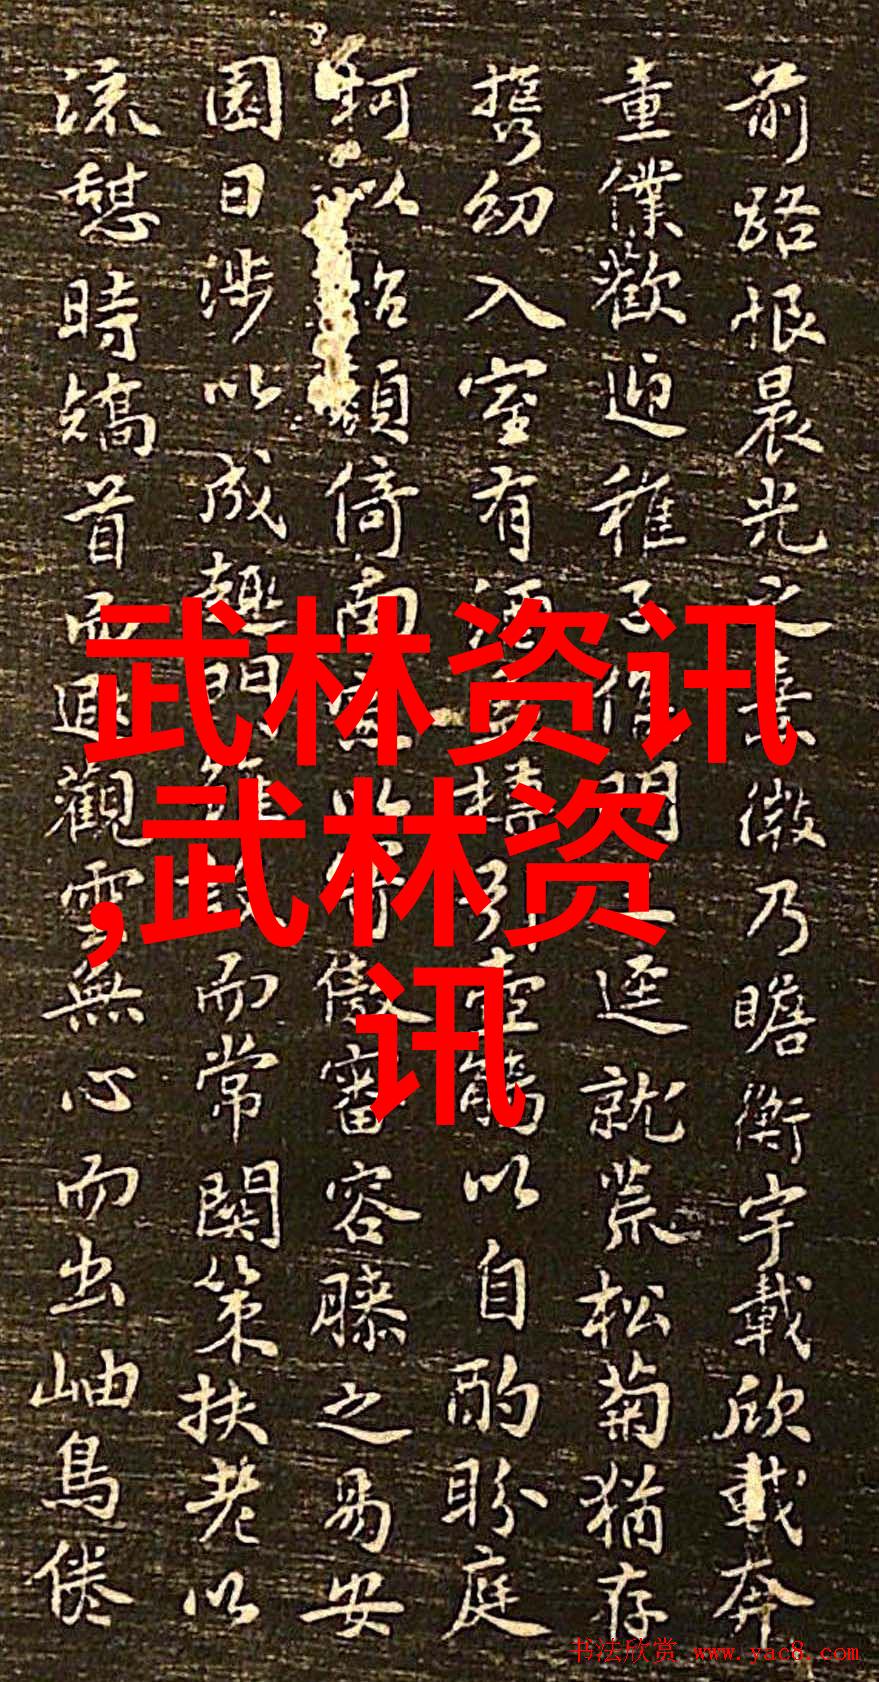 前路恨晨光之熹微乃瞻衡宇載欣載奔
童僕歡迎稚子候門三逕就荒松菊猶存
攜幼入室有酒盈樽引壺觴以自酌盼庭
柯以怡顏倚南窓以寄傲審容膝之易安
園日涉以成趣門雖設而常關策扶老以
流憩時矯首而遐觀雲無心而出岫鳥倦
武林资讯
,武林资
讯
书法欣赏 www.yac8.com